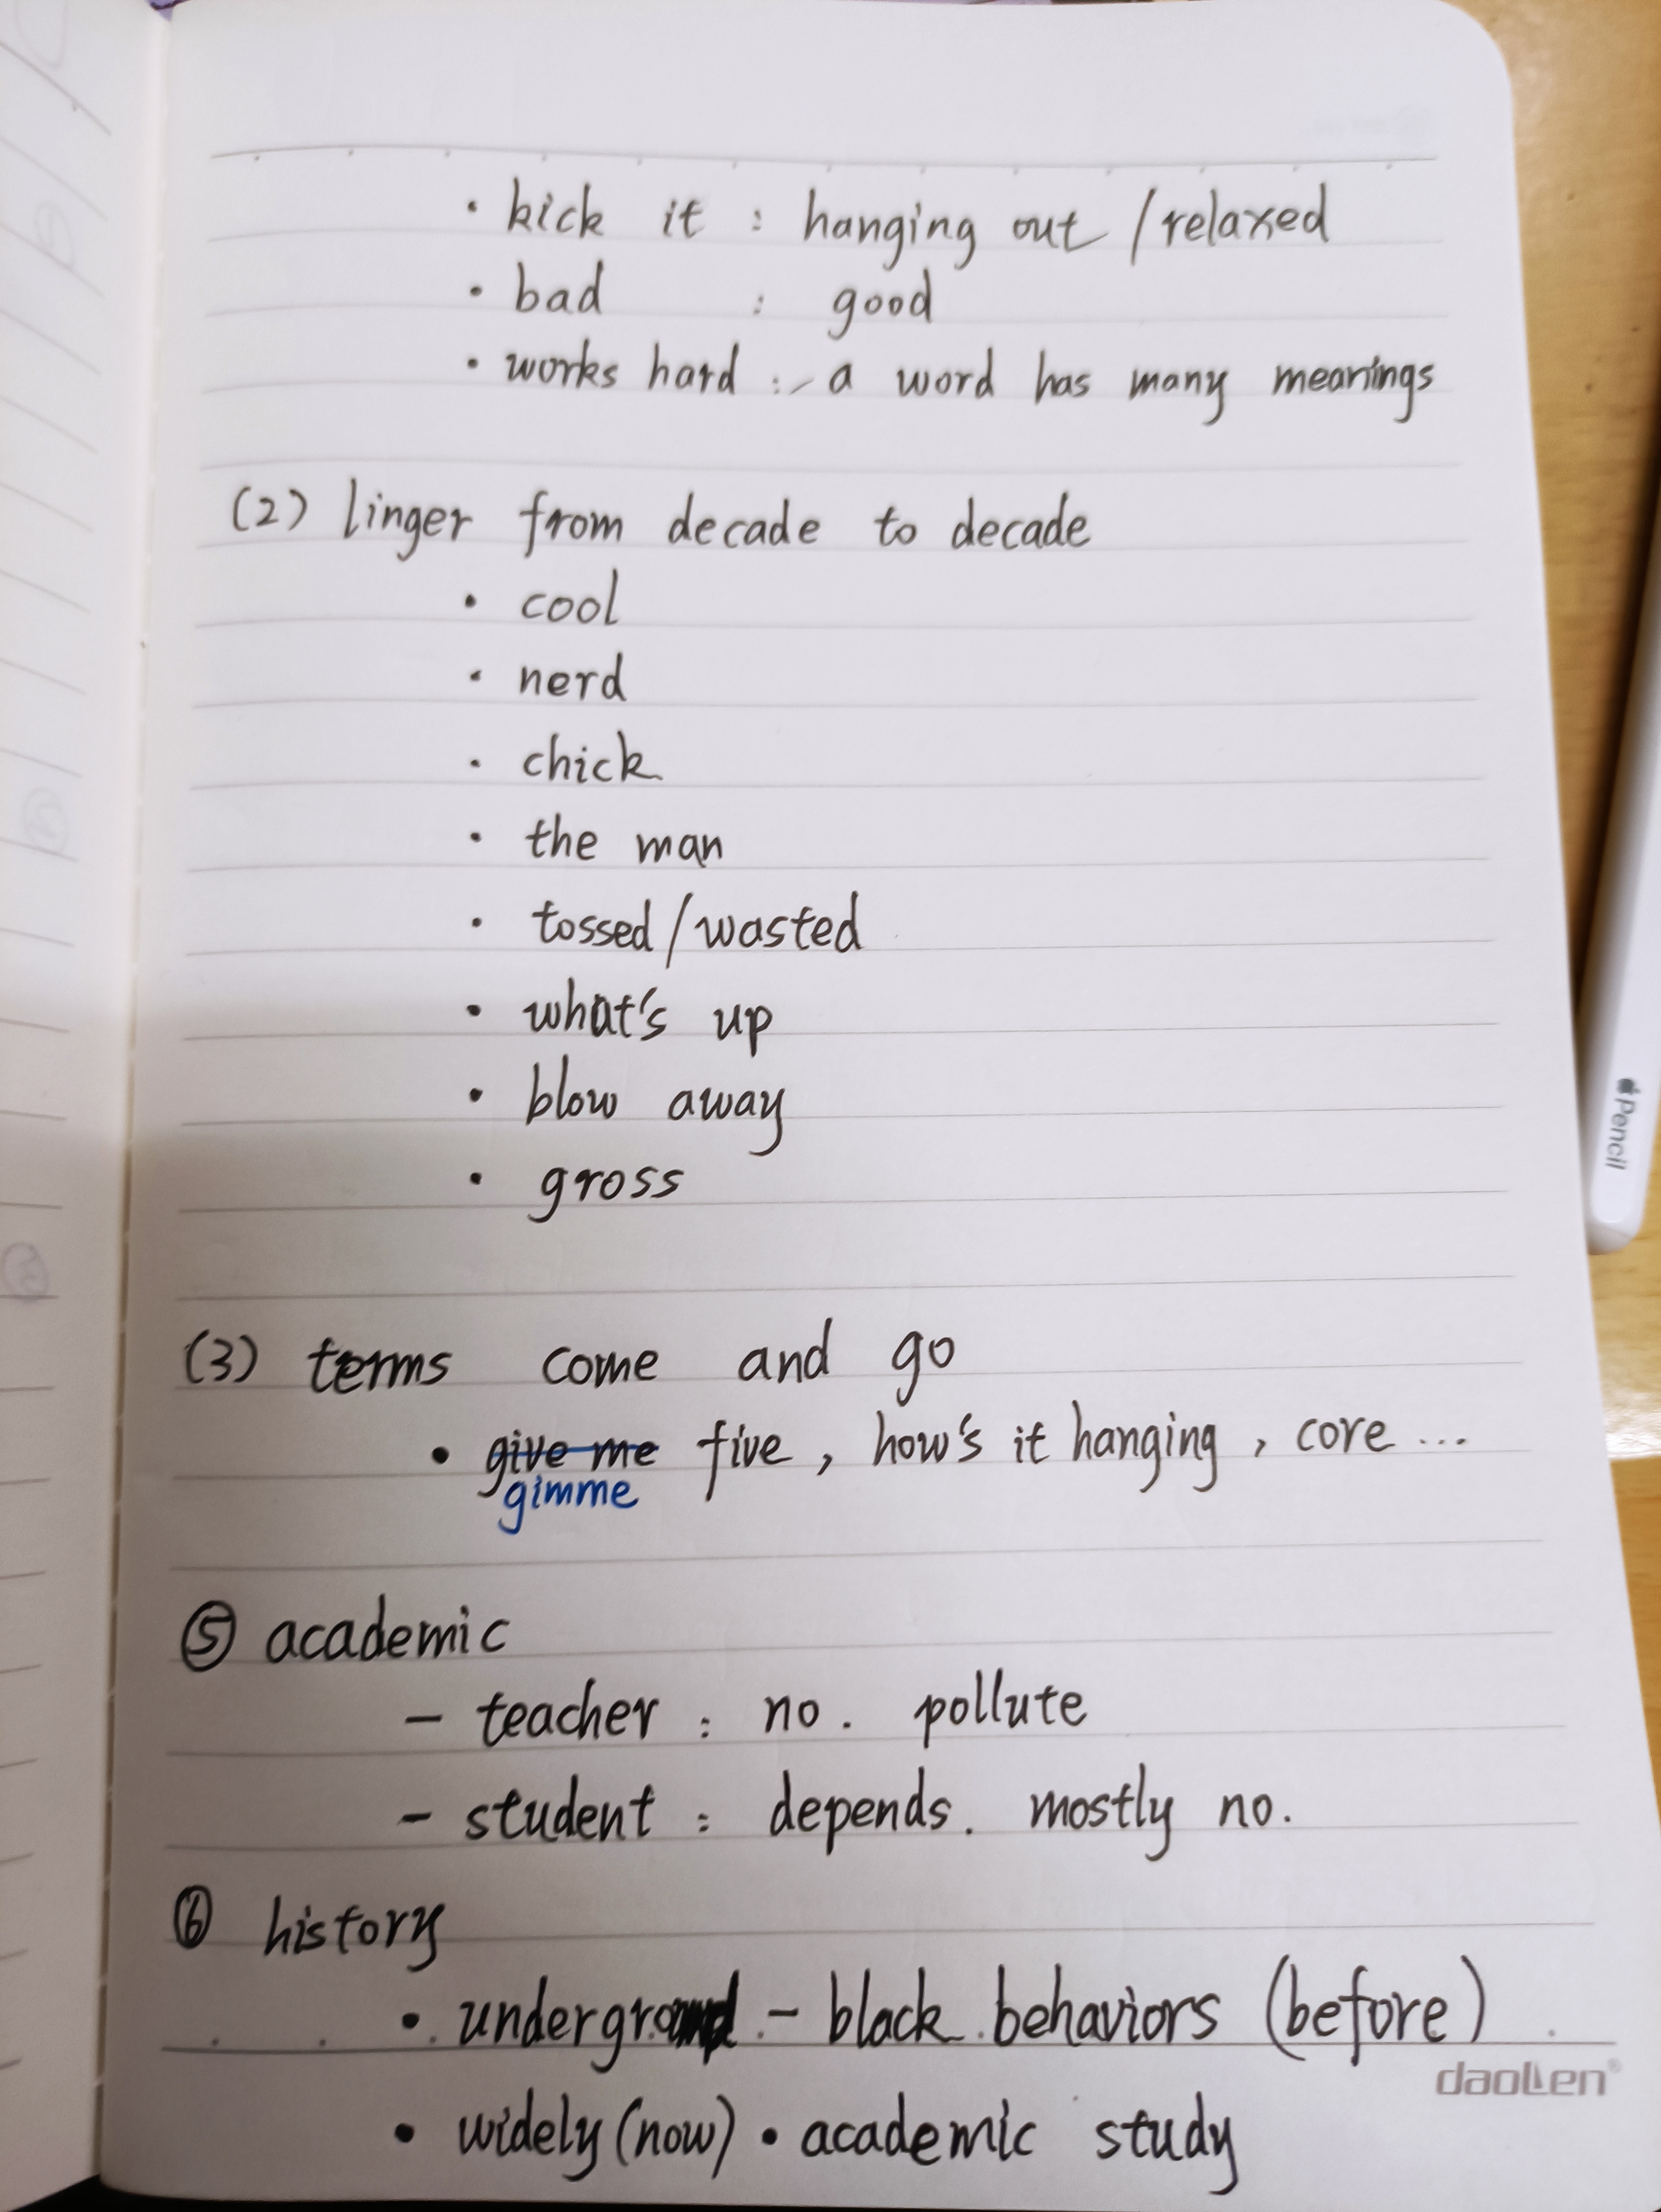 • kick it : hanging out / relaxed
• bad : good
• works hard : a word has many meanings
(2) linger from decade to decade
• cool
• nerd
• chick
• the man
• tossed / wasted
• what's up
• blow away
• gross
(3) terms come and go
• give me five , how's it hanging , core ...
gimme
⑤ academic
- teacher : no . pollute
- student : depends . mostly no .
⑥ history
• underground - black behaviors (before)
• widely (now) • academic study
daoLen®
Pencil